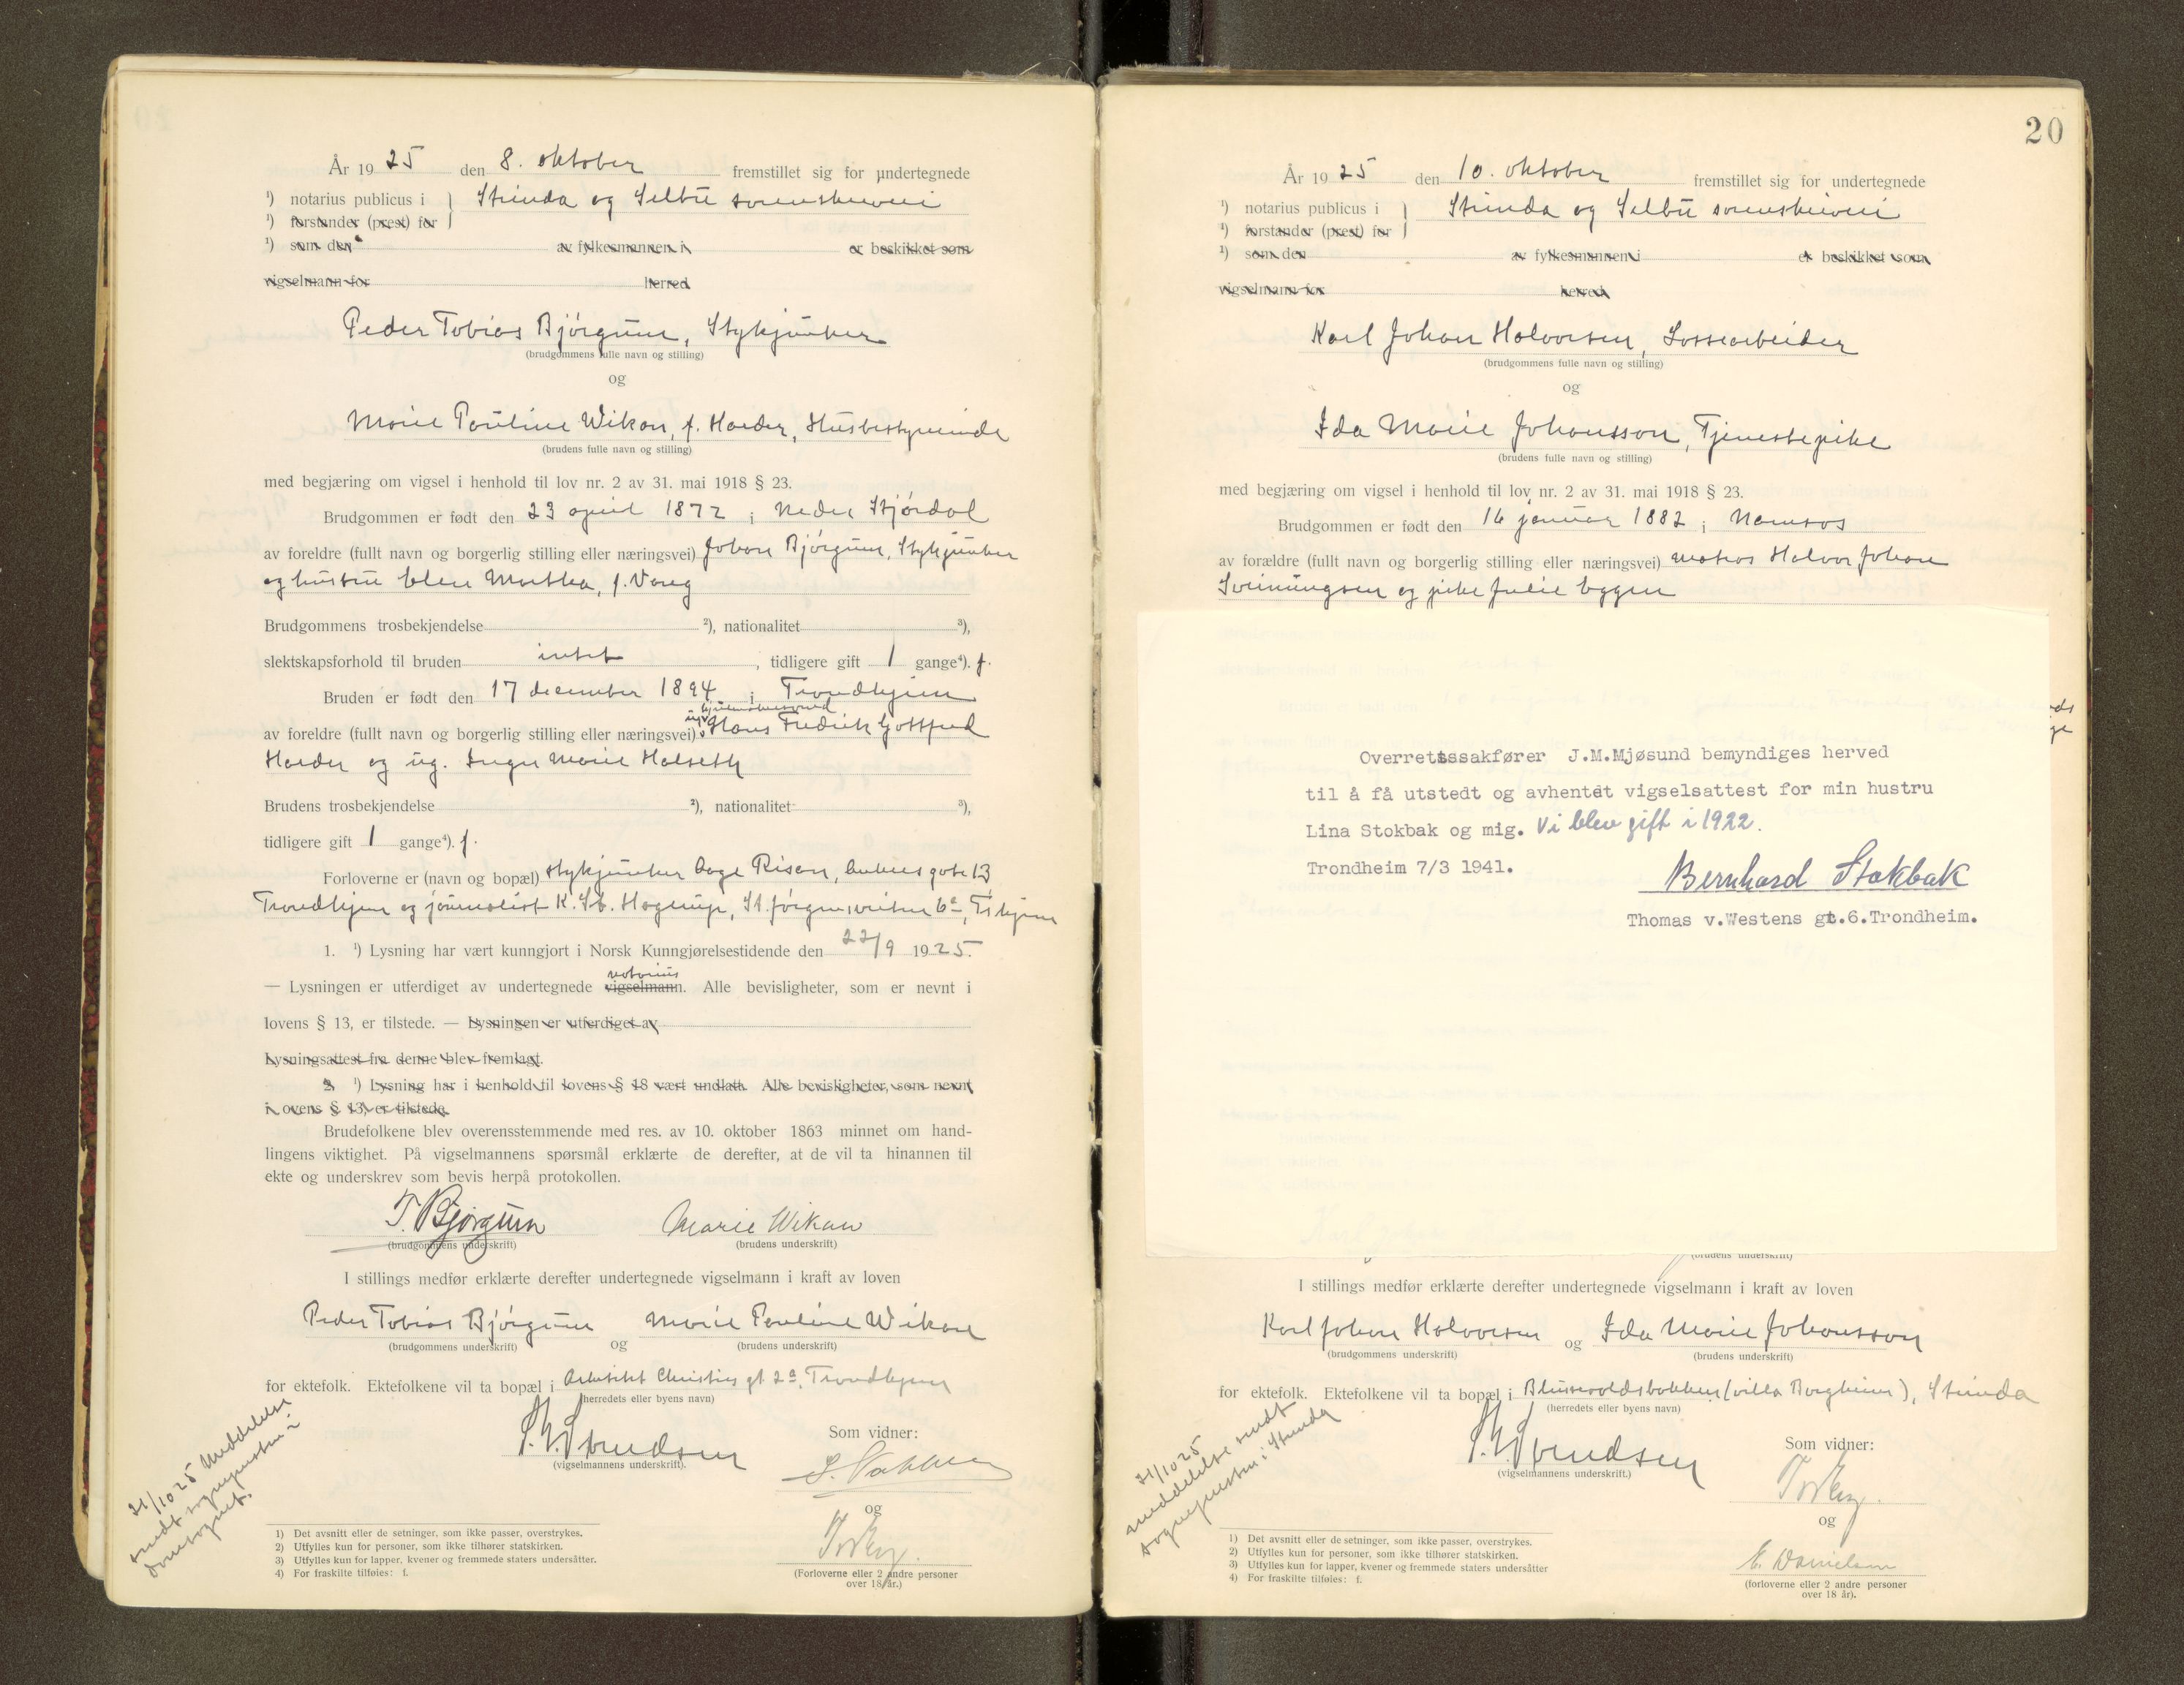 År 1925 den 8. oktober fremstillet sig for undertegnede
¹) notarius publicus i } Strinda og Selbu sorenskriveri
¹) forstander (prest) for
¹) som den av fylkesmannen i er beskikket som
vigselmann for herred
Peder Tobias Bjørgum, Stykjunker
(brudgommens fulle navn og stilling)
og
Marie Pauline Wikan, f. Harder, Husbestyrerinde
(brudens fulle navn og stilling)
med begjæring om vigsel i henhold til lov nr. 2 av 31. mai 1918 § 23.
Brudgommen er født den 23 april 1872 i Nedre Stjørdal
av foreldre (fullt navn og borgerlig stilling eller næringsvei) Johan Bjørgum, Stykjunker
og hustru Elen Martha, f. Vang
Brudgommens trosbekjendelse ²), nationalitet ³),
slektskapsforhold til bruden intet, tidligere gift 1 gange⁴). f.
Bruden er født den 17 december 1894 i Trondhjem
av foreldre (fullt navn og borgerlig stilling eller næringsvei) Hans Fredrik Gottfred
Harder og ug. Inger Marie Halseth
Brudens trosbekjendelse ²), nationalitet ³),
tidligere gift 1 gange⁴). f.
Forloverne er (navn og bopæl) stykjunker Aage Risan, gate 13
Trondhjem og journalist K. Sb. Hagrup, St. Jørgensveiten 6a, Tr.hjem
1. ¹) Lysning har vært kunngjort i Norsk Kunngjørelsestidende den 22/9 1925.
notarius
— Lysningen er utferdiget av undertegnede vigselmann. Alle bevisligheter, som er nevnt i
lovens § 13, er tilstede. — Lysningen er utferdiget av
Lysningsattest fra denne blev fremlagt.
2. ¹) Lysning har i henhold til lovens § 18 vært undlatt. Alle bevisligheter, som nevnt
i lovens § 13, er tilstede.
Brudefolkene blev overensstemmende med res. av 10. oktober 1863 minnet om hand-
lingens viktighet. På vigselmannens spørsmål erklærte de derefter, at de vil ta hinannen til
ekte og underskrev som bevis herpå protokollen.
T. Bjørgum Marie Wikan
(brudgommens underskrift) (brudens underskrift)
I stillings medfør erklærte derefter undertegnede vigselmann i kraft av loven
Peder Tobias Bjørgum og Marie Pauline Wikan
(brudgommens underskrift) (brudens underskrift)
for ektefolk. Ektefolkene vil ta bopæl i Arkitekt Christies gt 2a, Trondhjem
(herredets eller byens navn)
Svendsen
(vigselmannens underskrift).
Som vidner:
og
(Forloverne eller 2 andre personer
over 18 år.)
21/10 25 Meddelelse
sendt sognepresten i
Domsognet.
1) Det avsnitt eller de setninger, som ikke passer, overstrykes.
2) Utfylles kun for personer, som ikke tilhører statskirken.
3) Utfylles kun for lapper, kvener og fremmede staters undersåtter.
4) For fraskilte tilføies: f.
20
År 1925 den 10. oktober fremstillet sig for undertegnede
¹) notarius publicus i } Strinda og Selbu sorenskriveri
¹) forstander (prest) for
¹) som den av fylkesmannen i er beskikket som
vigselmann for herred
Karl Johan Halvorsen, Lossearbeider
(brudgommens fulle navn og stilling)
og
Ida Marie Johansson, Tjenestepike
(brudens fulle navn og stilling)
med begjæring om vigsel i henhold til lov nr. 2 av 31. mai 1918 § 23.
Brudgommen er født den 16 januar 1882 i Namsos
av forældre (fullt navn og borgerlig stilling eller næringsvei) matros Halvor Johan
Sveinungsen og pike Julie Eggen
Overretssakfører J.M.Mjøsund bemyndiges herved
til å få utstedt og avhentet vigselsattest for min hustru
Lina Stokbak og mig. Vi blev gift i 1922.
Trondheim 7/3 1941.
Bernhard Stokbak
Thomas v.Westens gt.6.Trondheim.
(brudens underskrift)
I stillings medfør erklærte derefter undertegnede vigselmann i kraft av loven
Karl Johan Halvorsen og Ida Marie Johansson
(brudgommens underskrift) (brudens underskrift)
for ektefolk. Ektefolkene vil ta bopæl i Blussuvoldsbakken (villa Borgheim), Strinda
(herredets eller byens navn)
Svendsen
(vigselmannens underskrift.)
Som vidner:
og
E. Danielsen
(forloverne eller 2 andre personer
over 18 år).
21/10 25
meddelelse sendt
sognepresten i Strinda
1) Det avsnitt eller de setninger, som ikke passer, overstrykes.
2) Utfylles kun for personer, som ikke tilhører statskirken.
3) Utfylles kun for lapper, kvener og fremmede staters undersåtter
4) For fraskilte tilføies: f.